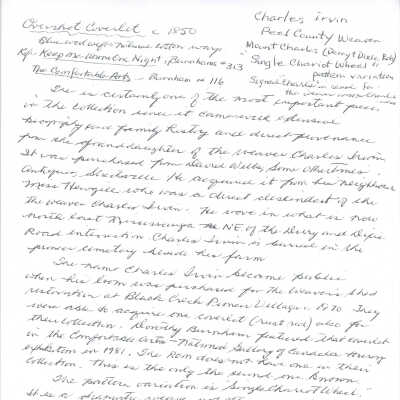 Overshot Coverlet c 1850
Charles Irvin
Peel County Weaver
Mount Charles (Derry & Dixie Rds)
"Single Chariot Wheel"
pattern variation
Blue wool weft natural cotton warp
Ref. Keep Me Warm One Night, Burnhams # 313
The Comfortable Arts - Burnham # 116
is certainly one of the most important pieces
in the collection since it
family history and direct provenance
from the granddaughter of the weaver Charles Irvin.
It was purchased from David Wells, Some Other Times
Antiques, He acquired it from his neighbour
Miss who was a direct descendent of the
the weaver Charles Irvin. He wove in what is now
north east Mississauga NE. of the Derry and Dixie
Road intersection Charles Irvin is buried in the
pioneer cemetery beside his farm
The name Charles Irvin became public
when his loom was purchased for the weaver's shed
restoration at Black Creek Pioneer Village in 1970. They
were able to acquire one coverlet (rust red) also for
their collection. Dorothy Burnham featured that coverlet
in the Comfortable Arts - National Gallery of Canada
exhibition in 1981. The Rom does not have one in their
collection. This is the only the second one known.
The pattern variation is Single Chariot Wheel.
It is a